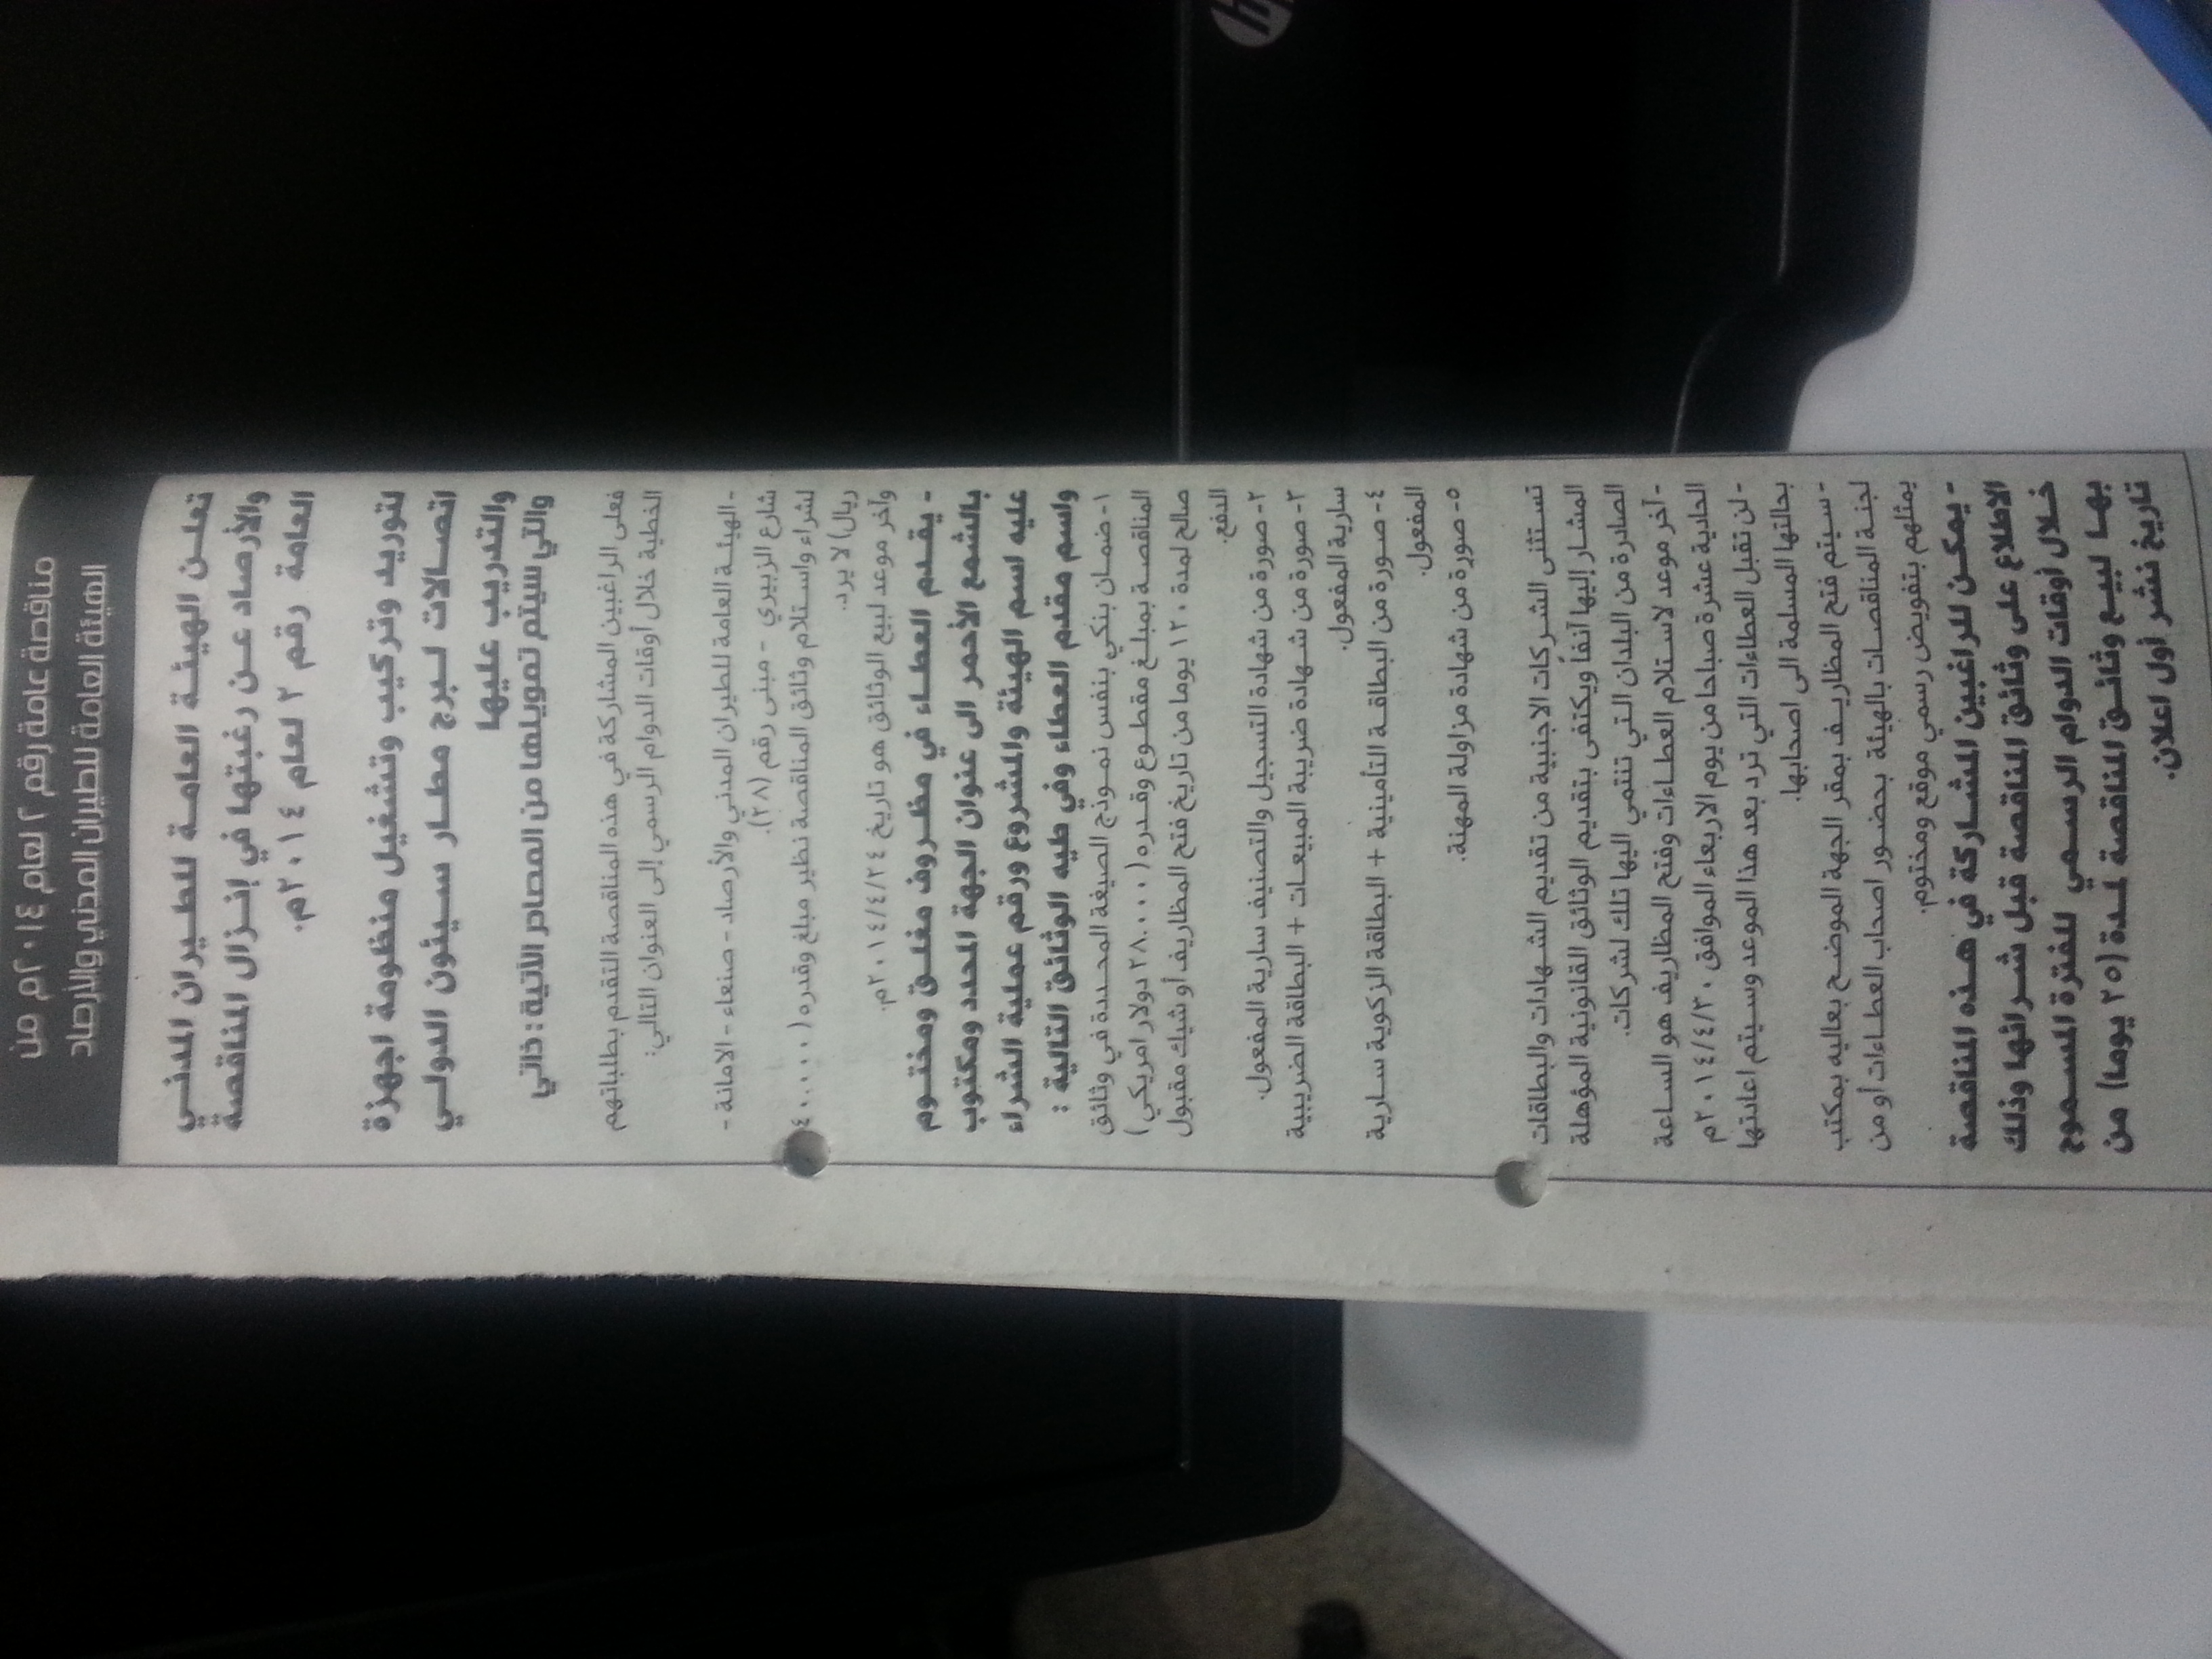 مناقصة عامة رقم ٢ لعام ٢٠١٤م من
الهيئة العامة للطيران المدني والأرصاد
تعلن الهيئة العامة للطيران المدني
والأرصاد عن رغبتها في إنزال المناقصة
العامة رقم ٢ لعام ٢٠١٤م.
لتوريد وتركيب وتشغيل منظومة اجهزة
اتصالات لبرج مطار سيئون الدولي
والتدريب عليها
والتي سيتم تمويلها من المصادر الآتية: ذاتي
فعلى الراغبين المشاركة في هذه المناقصة التقدم بطلباتهم
الخطية خلال أوقات الدوام الرسمي إلى العنوان التالي:
-الهيئة العامة للطيران المدني والأرصاد - صنعاء - الامانة -
شارع الزبيري - مبنى رقم (٢٨).
لشراء واستلام وثائق المناقصة نظير مبلغ وقدره (٤٠.٠٠٠
ريال) لا يرد.
وآخر موعد لبيع الوثائق هو تاريخ ٢٠١٤/٤/٢٤م.
- يقدم العطاء في مظروف مغلق ومختوم
بالشمع الأحمر الى عنوان الجهة المحدد ومكتوب
عليه اسم الهيئة والمشروع ورقم عملية الشراء
واسم مقدم العطاء وفي طيه الوثائق التالية :
١- ضمان بنكي بنفس نموذج الصيغة المحددة في وثائق
المناقصة بمبلغ مقطوع وقدره (٢٨.٠٠٠ دولار امريكي)
صالح لمدة ١٢٠ يوما من تاريخ فتح المظاريف أو شيك مقبول
الدفع.
٢- صورة من شهادة التسجيل والتصنيف سارية المفعول.
٣- صورة من شهادة ضريبة المبيعات + البطاقة الضريبية
سارية المفعول.
٤- صورة من البطاقة التأمينية + البطاقة الزكوية سارية
المفعول.
٥- صورة من شهادة مزاولة المهنة.
تستثنى الشركات الاجنبية من تقديم الشهادات والبطاقات
المشار إليها آنفاً ويكتفى بتقديم الوثائق القانونية المؤهلة
الصادرة من البلدان التي تنتمي اليها تلك لشركات.
- آخر موعد لاستلام العطاءات وفتح المظاريف هو الساعة
الحادية عشرة صباحا من يوم الاربعاء الموافق ٢٠١٤/٤/٣٠م
- لن تقبل العطاءات التي ترد بعد هذا الموعد وسيتم اعادتها
بحالتها المسلمة الى اصحابها.
- سيتم فتح المظاريف بمقر الجهة الموضح بعاليه بمكتب
لجنة المناقصات بالهيئة بحضور اصحاب العطاءات أو من
يمثلهم بتفويض رسمي موقع ومختوم.
- يمكن للراغبين المشاركة في هذه المناقصة
الاطلاع على وثائق المناقصة قبل شرائها وذلك
خلال أوقات الدوام الرسمي للفترة المسموح
بها لبيع وثائق المناقصة لمدة (٢٥ يوما) من
تاريخ نشر أول اعلان.
hp